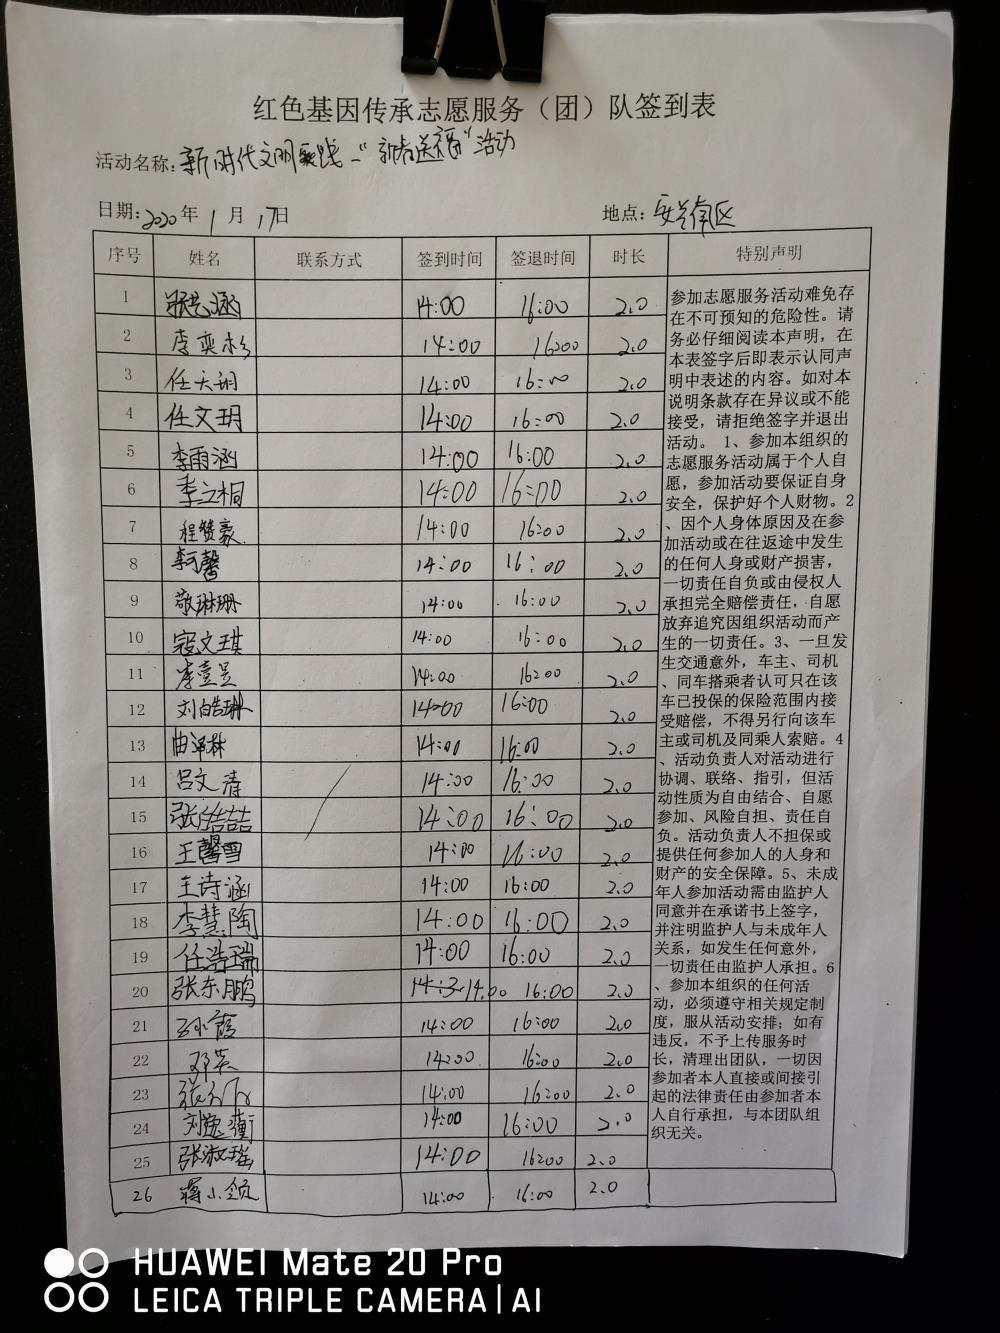 红色基因传承志愿服务（团）队签到表
活动名称：新时代文明实践-“新春送福”活动
日期：2020年1月17日 地点：安兴南区
序号 姓名 联系方式 签到时间 签退时间 时长 特别声明
1 张艺涵 14:00 16:00 2.0
2 李奕杉 14:00 16:00 2.0
3 任天玥 14:00 16:00 2.0
4 任文玥 14:00 16:00 2.0
5 李雨涵 14:00 16:00 2.0
6 季立桐 14:00 16:00 2.0
7 程赞豪 14:00 16:00 2.0
8 李珂馨 14:00 16:00 2.0
9 敬琳珊 14:00 16:00 2.0
10 寇文琪 14:00 16:00 2.0
11 李壹昊 14:00 16:00 2.0
12 刘皓琳 14:00 16:00 2.0
13 曲泽林 14:00 16:00 2.0
14 吕文清 14:00 16:00 2.0
15 张皓喆 14:00 16:00 2.0
16 王馨雪 14:00 16:00 2.0
17 王诗涵 14:00 16:00 2.0
18 李慧陶 14:00 16:00 2.0
19 任浩瑞 14:00 16:00 2.0
20 张东鹏 14:00 16:00 2.0
21 孙小霞 14:00 16:00 2.0
22 邓英 14:00 16:00 2.0
23 14:00 16:00 2.0
24 刘逸衡 14:00 16:00 2.0
25 张淑瑶 14:00 16:00 2.0
26 蒋小 14:00 16:00 2.0
参加志愿服务活动难免存
在不可预知的危险性。请
务必仔细阅读本声明，在
本表签字后即表示认同声
明中表述的内容。如对本
说明条款存在异议或不能
接受，请拒绝签字并退出
活动。 1、参加本组织的
志愿服务活动属于个人自
愿，参加活动要保证自身
安全，保护好个人财物。2
、因个人身体原因及在参
加活动或在往返途中发生
的任何人身或财产损害，
一切责任自负或由侵权人
承担完全赔偿责任，自愿
放弃追究因组织活动而产
生的一切责任。3、一旦发
生交通意外，车主、司机
、同车搭乘者认可只在该
车已投保的保险范围内接
受赔偿，不得另行向该车
主或司机及同乘人索赔。4
、活动负责人对活动进行
协调、联络、指引，但活
动性质为自由结合、自愿
参加、风险自担、责任自
负。活动负责人不担保或
提供任何参加人的人身和
财产的安全保障。5、未成
年人参加活动需由监护人
同意并在承诺书上签字，
并注明监护人与未成年人
关系，如发生任何意外，
一切责任由监护人承担。6
、参加本组织的任何活
动，必须遵守相关规定制
度，服从活动安排；如有
违反，不予上传服务时
长，清理出团队，一切因
参加者本人直接或间接引
起的法律责任由参加者本
人自行承担，与本团队组
织无关。
HUAWEI Mate 20 Pro
LEICA TRIPLE CAMERA | AI